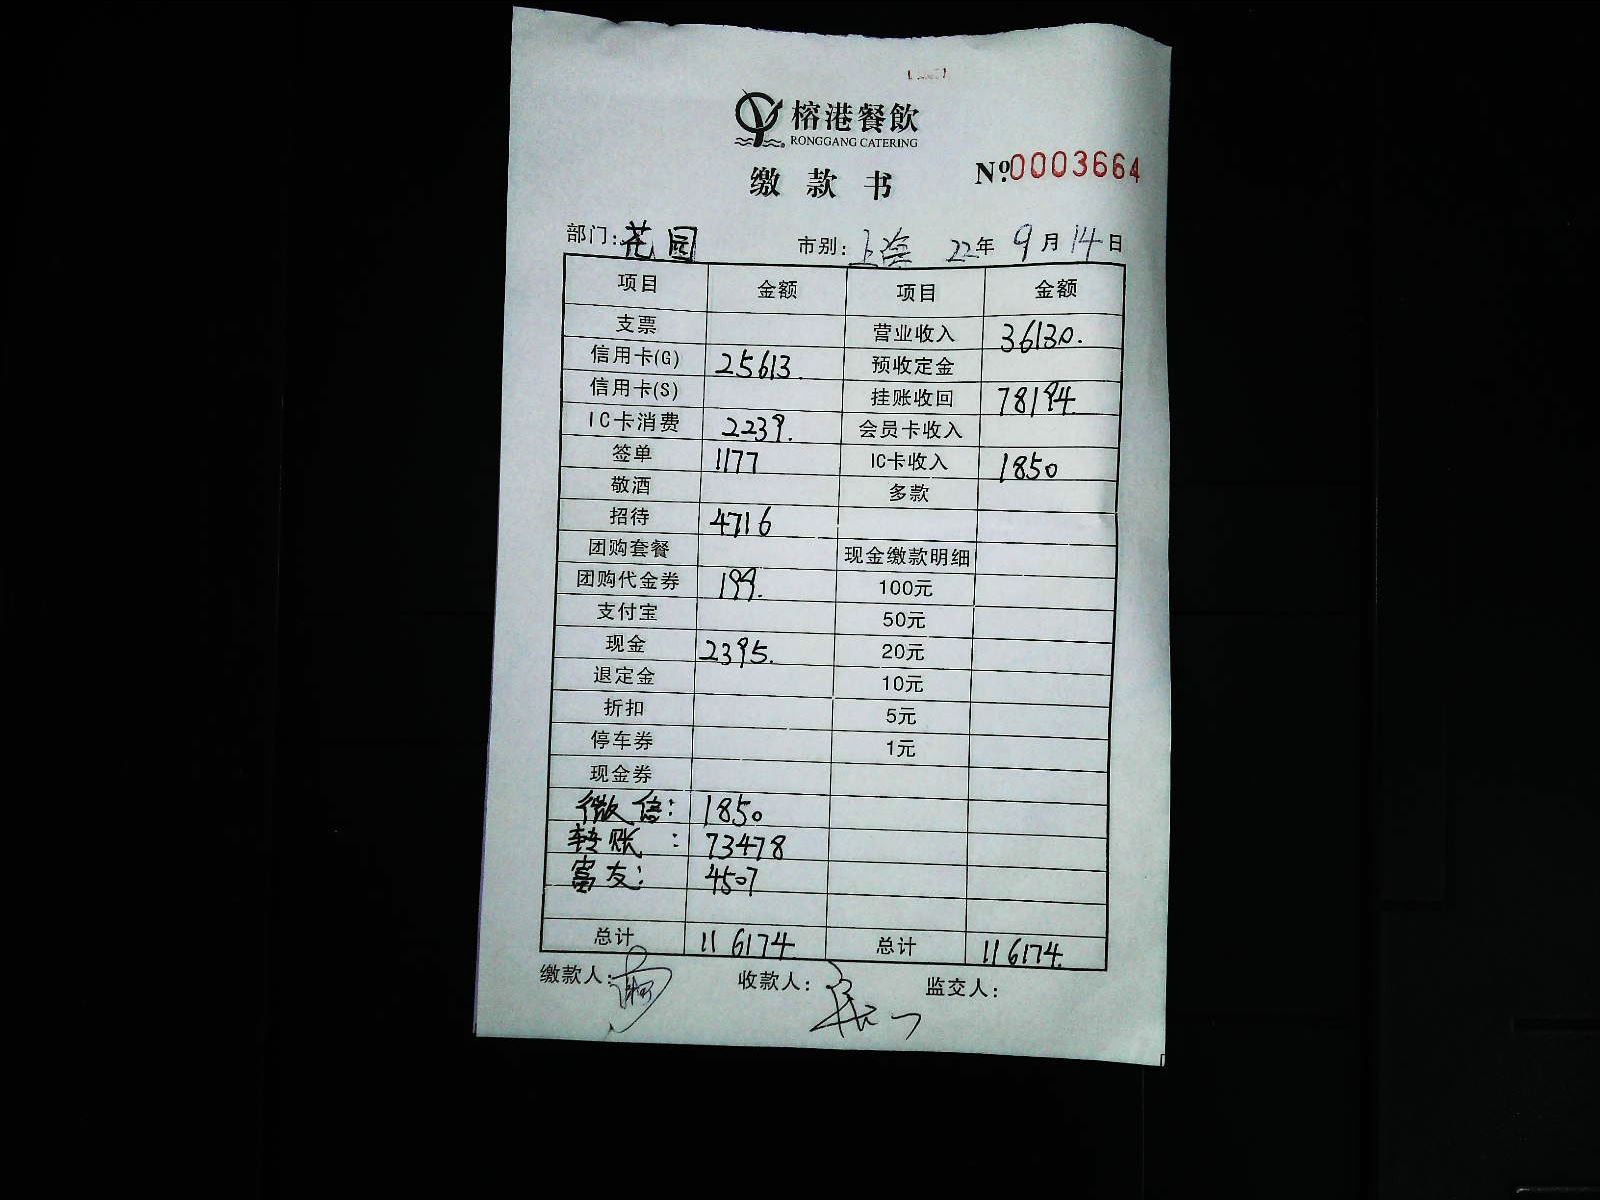 榕港餐飲
RONGGANG CATERING
缴款书 №0003664
部门: 花园 市别: 上海 22年 9月 14日
项目 金额 项目 金额
支票 营业收入 36130.
信用卡(G) 25613. 预收定金
信用卡(S) 挂账收回 78194
IC卡消费 2239. 会员卡收入
签单 1177 IC卡收入 1850
敬酒 多款
招待 4716
团购套餐 现金缴款明细
团购代金券 199. 100元
支付宝 50元
现金 2395. 20元
退定金 10元
折扣 5元
停车券 1元
现金券
微信: 1850
转账: 73478
富友: 4507
总计 116174 总计 116174.
缴款人: 收款人: 监交人: